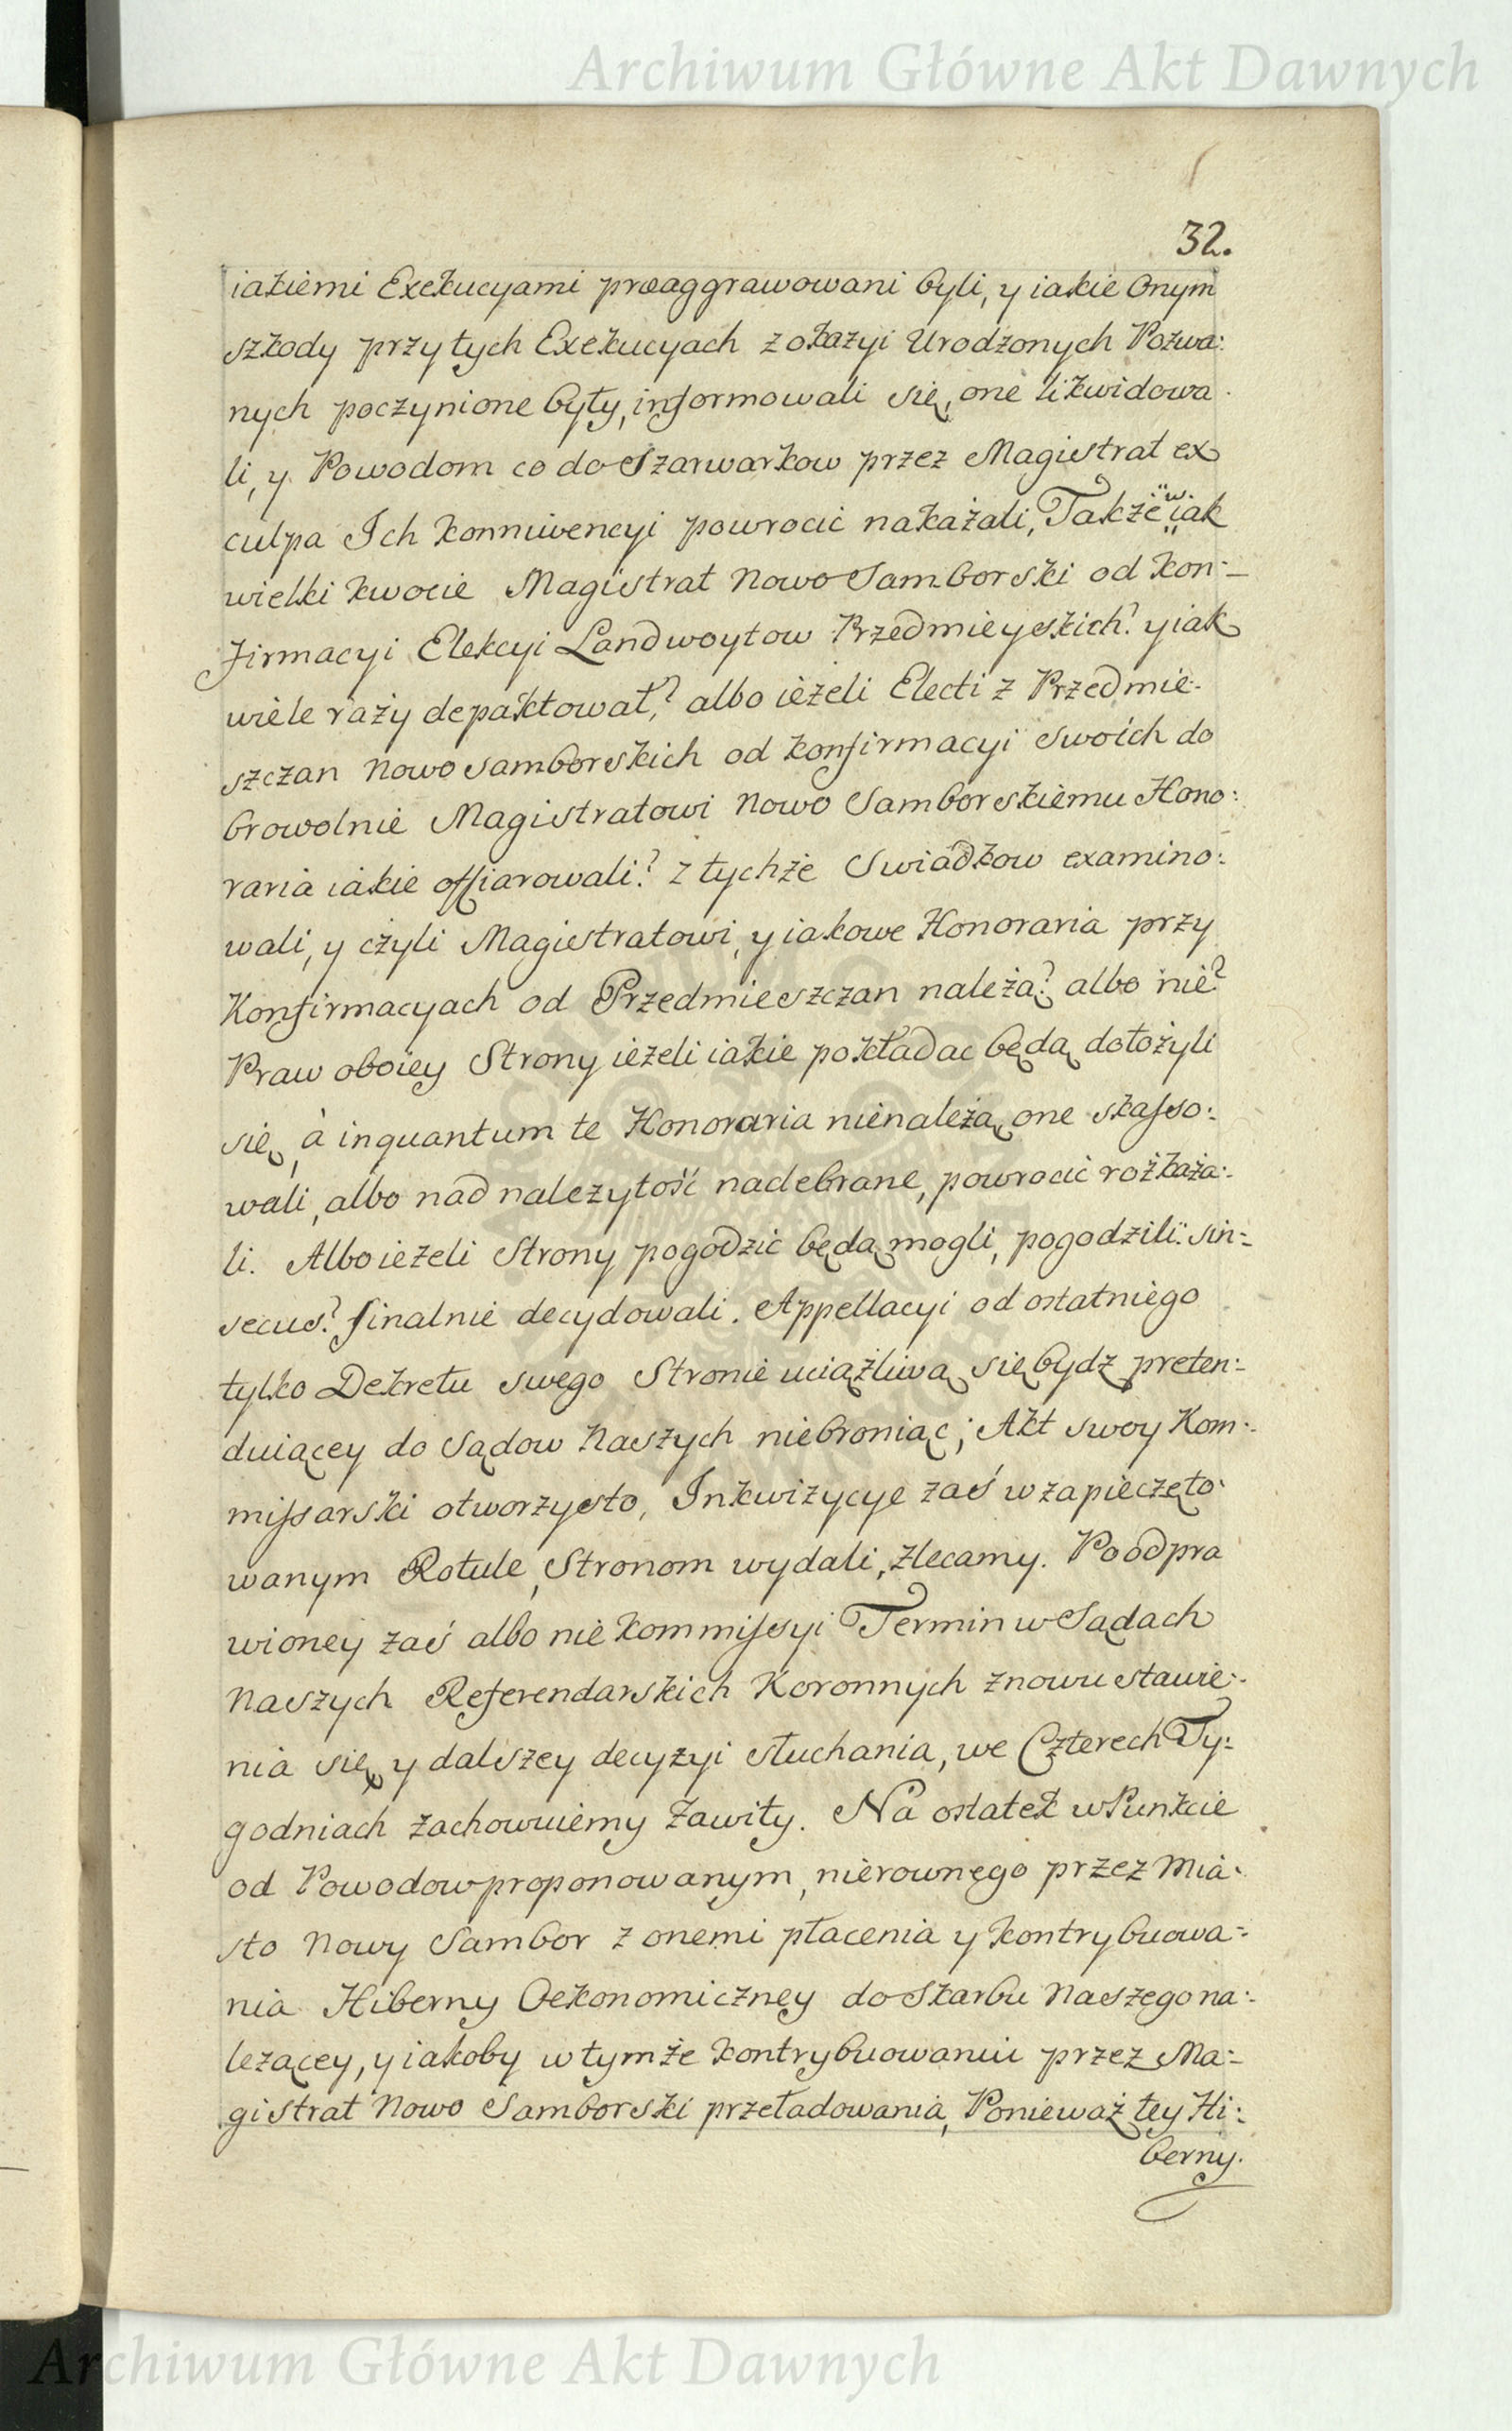 Archiwum Główne Akt Dawnych
32.
iakiemi Exekucyami præaggrawowani byli, y iakie Onym
szkody przy tych Exekucyach z okazyi Urodzonych Pozwa:
nych poczynione były, informowali się, one likwidowa
li, y Powodom co do Szarwarkow przez Magistrat ex
culpa Ich konniwencyi powrocić nakazali, Także w iak
wielki kwocie Magistrat Nowo Samborski od kon:
firmacyi Elekcyi Landwoytow Przedmieyskich? y iak
wiele razy depaktował? albo ieżeli Electi z Przedmie:
szczan Nowo Samborskich od konfirmacyi swoich do
browolnie Magistratowi Nowo Samborskiemu Hono:
raria iakie offiarowali? z tychże Swiadkow examino:
wali, y czyli Magistratowi, y iakowe Honoraria przy
Konfirmacyach od Przedmieszczan należą? albo nie?
Praw oboiey Strony ieżeli iakie pokładac będą dołożyli
się, à inquantum te Honoraria nienależą, one skasso:
wali, albo nad należytość nadebrane, powrocić rozkaza:
li. Albo ieżeli Strony pogodzić będą mogli, pogodzili: sin:
secus? finalnie decydowali. Appellacyi od ostatniego
tylko Dekretu swego Stronie uciążliwą się bydz preten:
duiącey do Sądow Naszych niebroniąc; Akt swoy Kom:
missarski otworzysto, Inkwizycye zaś w zapieczęto:
wanym Rotule, Stronom wydali, zlecamy. Po odpra
wioney zaś albo nie kommissyi Termin w Sądach
Naszych Referendarskich Koronnych znowu stawie:
nia się, y dalszey decyzyi słuchania, we Czterech Ty:
godniach zachowuiemy zawity. Na ostatek w Punkcie
od Powodow proponowanym, nierownego przez Mia:
sto Nowy Sambor z onemi płacenia y kontrybuowa:
nia Hiberny Oekonomiczney do Skarbu Naszego na:
leżącey, y iakoby w tymże kontrybuowaniu przez Ma:
gistrat Nowo Samborski przeładowania, Ponieważ tey Hi:
berny.
Archiwum Główne Akt Dawnych